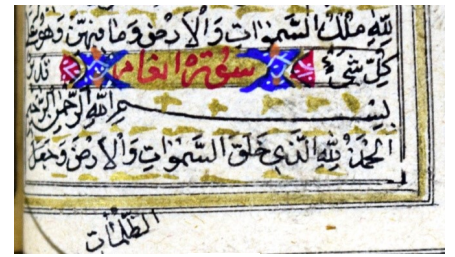 لِلّٰهِ مُلْكُ السَّمٰوَاتِ وَالْاَرْضِ وَمَا فِيْهِنَّ وَهُوَ عَلٰى
كُلِّ شَیْءٍ سورة انعام قدير
بِسْمِ اللّٰهِ الرَّحْمٰنِ الرَّحِيْمِ
اَلْحَمْدُ لِلّٰهِ الَّذِيْ خَلَقَ السَّمٰوَاتِ وَالْاَرْضَ وَجَعَلَ
الظُّلُمَاتِ